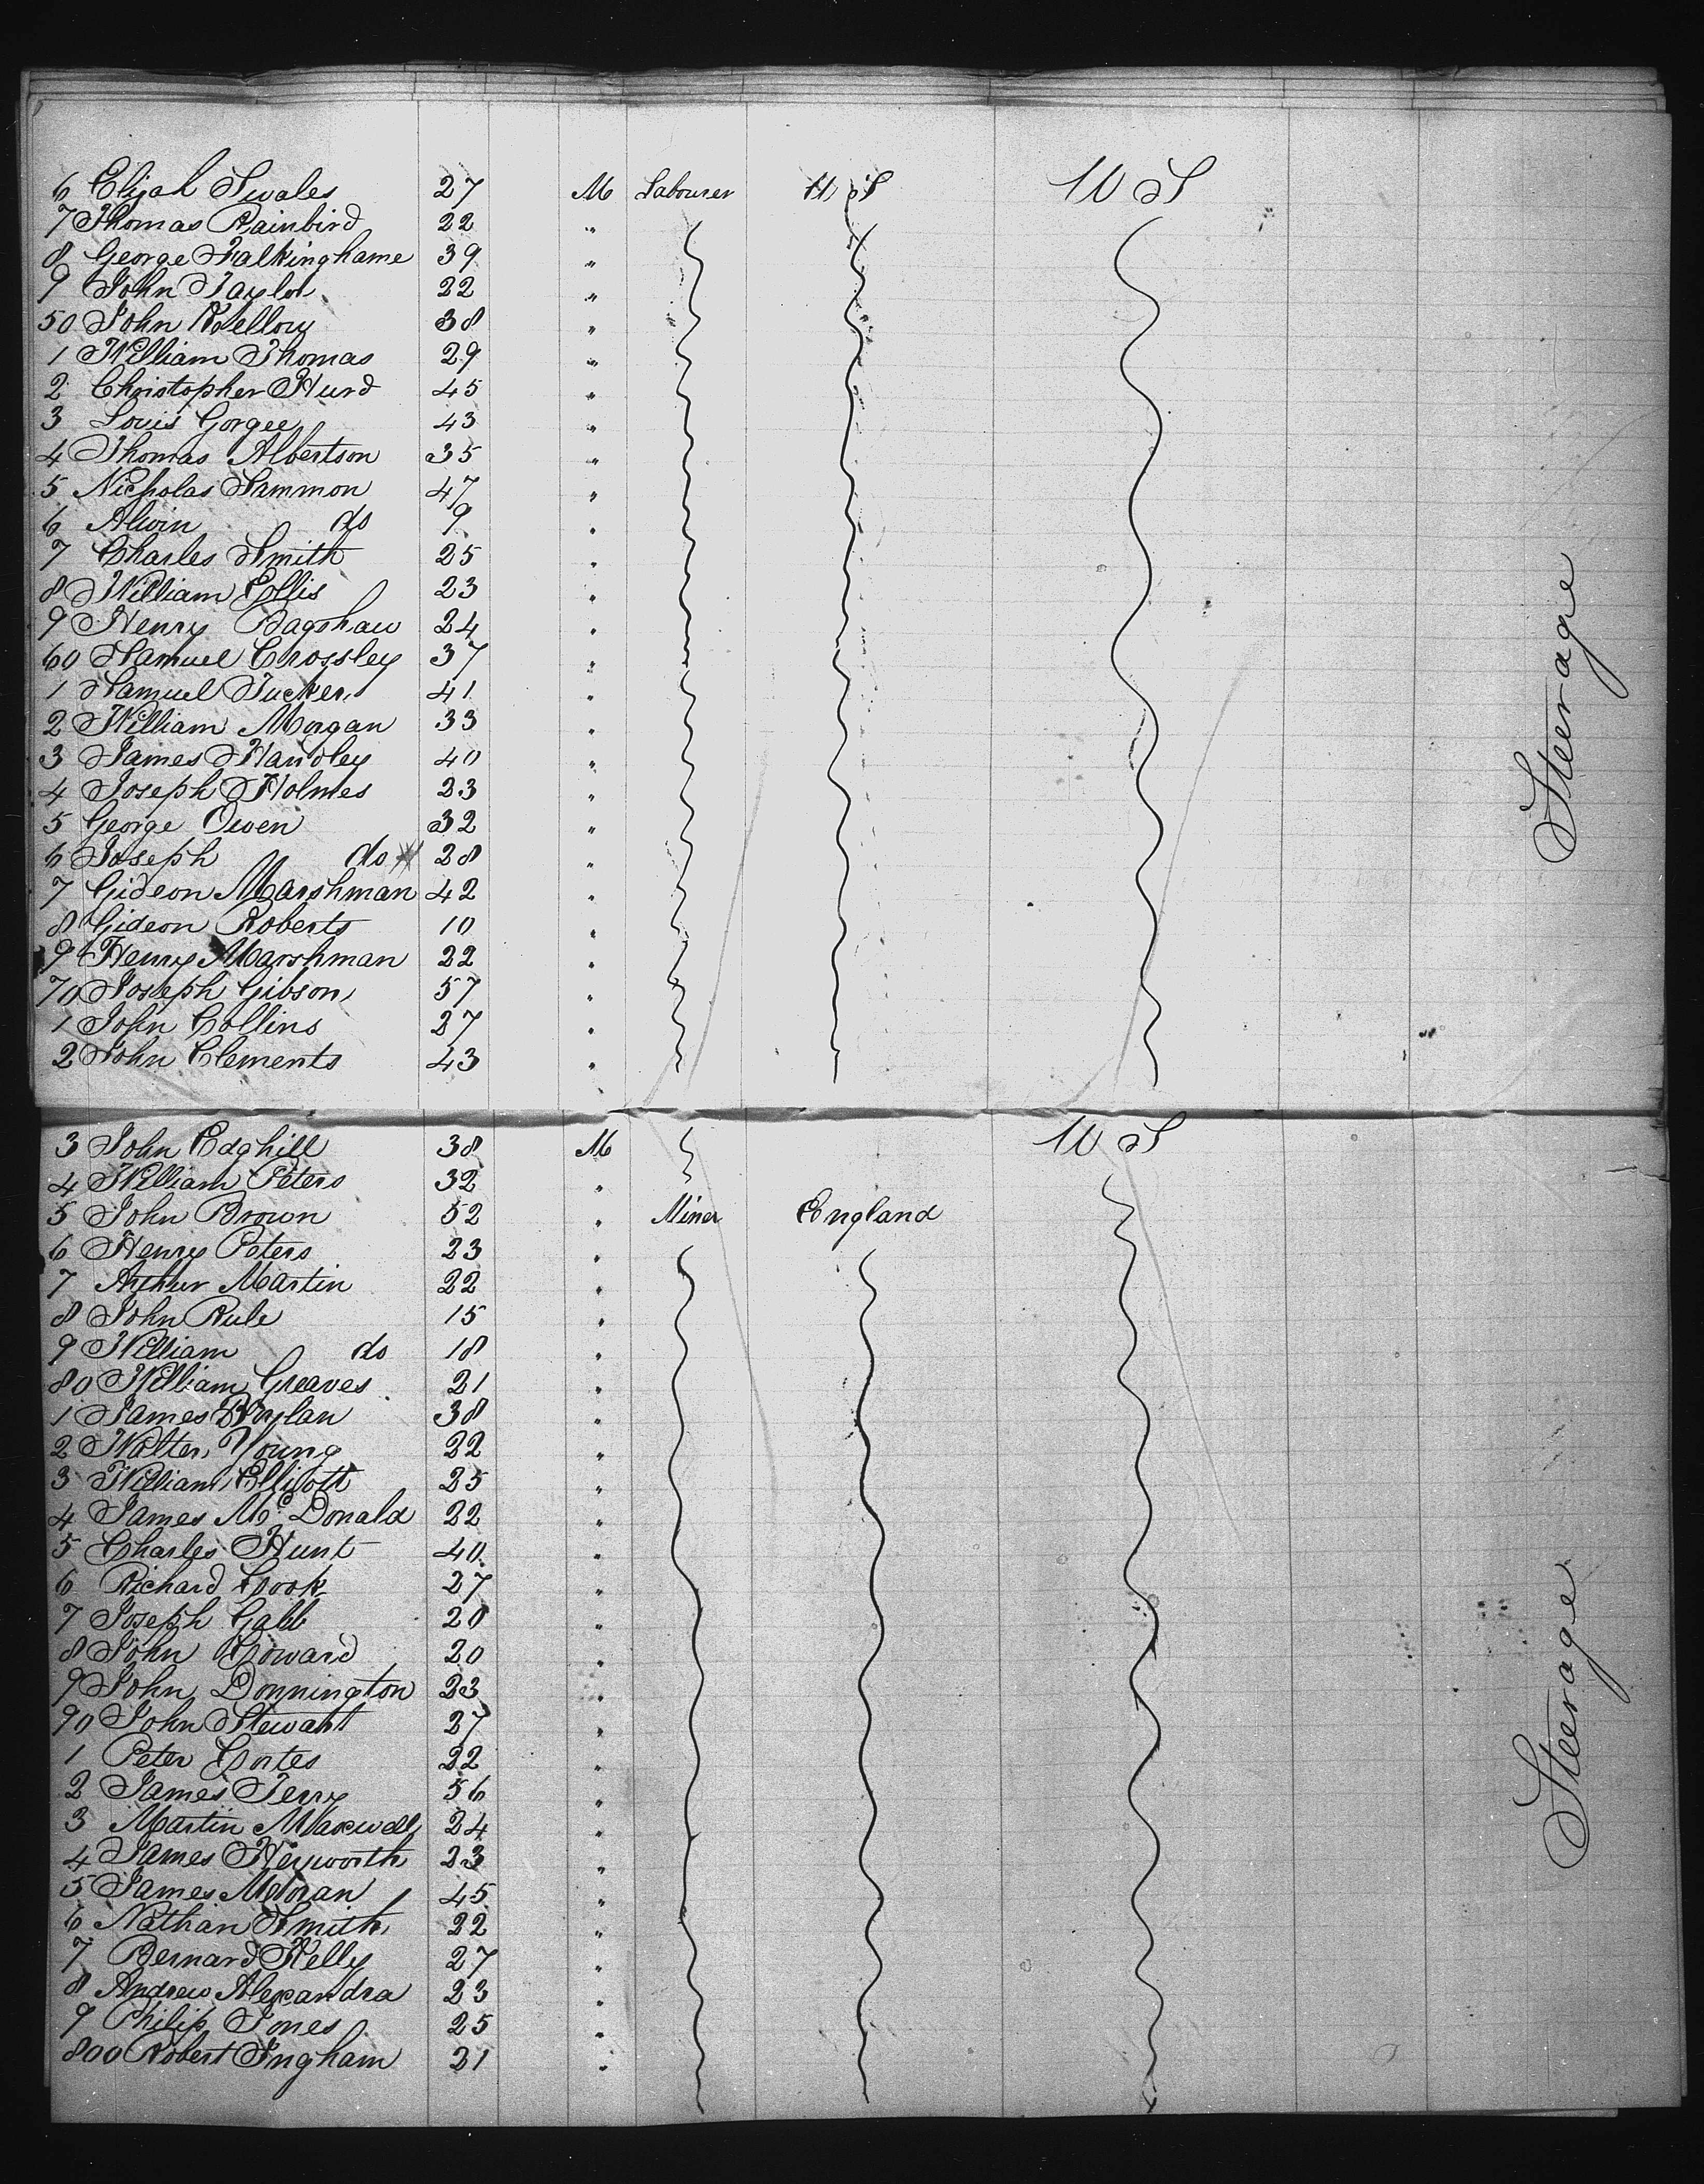 6 Elijah Swales 27 M Labourer U S U S
7 Thomas Rainbird 22 "
8 George Falkinghame 39 "
9 John Taylor 22 "
50 John 38 "
1 William Thomas 29 "
2 Christopher Hurd 45 "
3 Louis Gorgee 43 "
4 Thomas Albertson 35 "
5 Nicholas Sammon 47 "
6 Alwin do 9 "
7 Charles Smith 25 "
8 William Collis 23 "
9 Henry Bagshaw 24 "
60 Samuel Crossley 37 "
1 Samuel Tucker 41 "
2 William Morgan 33 "
3 James Handley 40 "
4 Joseph Holmes 23 "
5 George Owen 32 "
6 Joseph do 28 "
7 Gideon Marshman 42 "
8 Gideon Roberts 10 "
9 Henry Marshman 22 "
70 Joseph Gibson 57 "
1 John Collins 27 "
2 John Clements 43 "
Steerage
3 John Edghill 38 M U S
4 William Peters 32 "
5 John Brown 52 " Miner England
6 Henry Peters 23 "
7 Arthur Martin 22 "
8 John Rule 15 "
9 William do 18 "
80 William Greaves 21 "
1 James Boylan 38 "
2 Walter Young 22 "
3 William Ellicott 25 "
4 James McDonald 22 "
5 Charles Hunt 40 "
6 Richard Cook 27 "
7 Joseph Gabb 20 "
8 John Coward 20 "
9 John Donnington 23 "
90 John Stewart 27 "
1 Peter Coates 22 "
2 James Terry 56 "
3 Martin Maxwell 24 "
4 James Heyworth 23 "
5 James Moran 45 "
6 Nathan Smith 22 "
7 Bernard Kelly 27 "
8 Andrew Alexandra 23 "
9 Philip Jones 25 "
800 Robert Ingham 21 "
Steerage